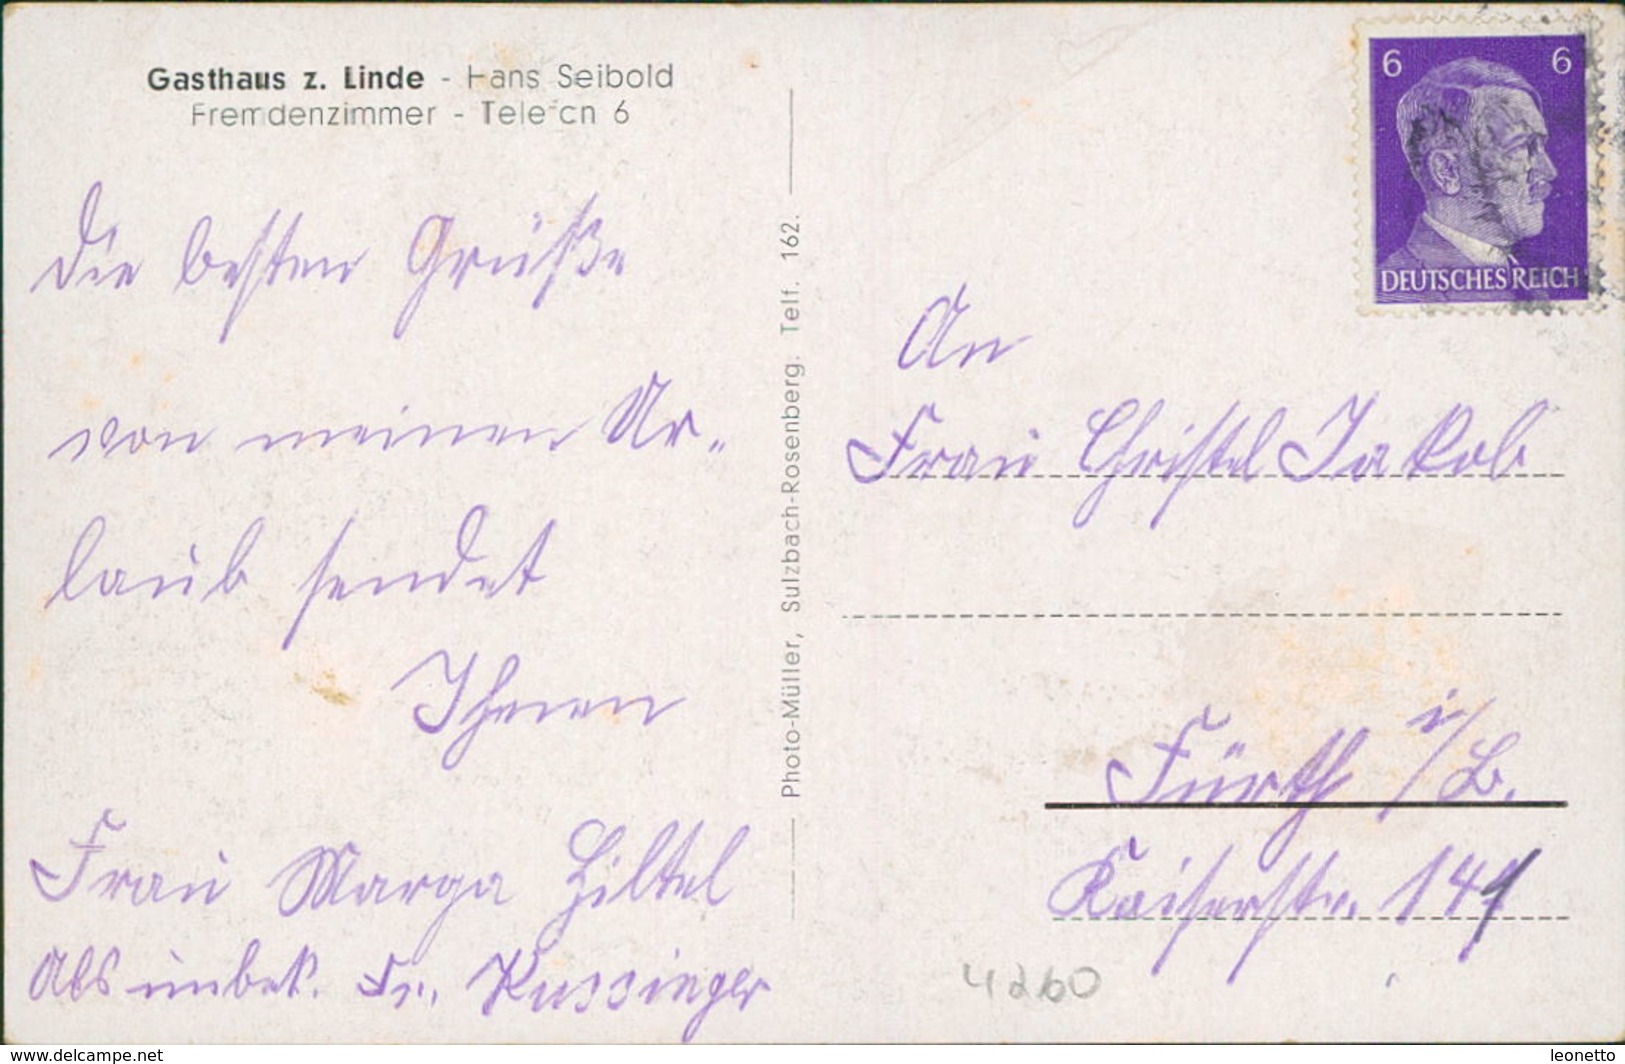 Gasthaus z. Linde - Hans Seibold
Fremdenzimmer - Telefon 6
Die besten Grüße
von meinen Ur-
laub sendet
Ihnen
Frau Marga Hiltel
Als unbek. Fr. Kussinger
Photo-Müller, Sulzbach-Rosenberg. Telf. 162.
6 6
DEUTSCHES REICH
An
Frau Christel Jakob
Fürth i/B.
Kaiserstr. 144
4260
www.delcampe.net
leonetto